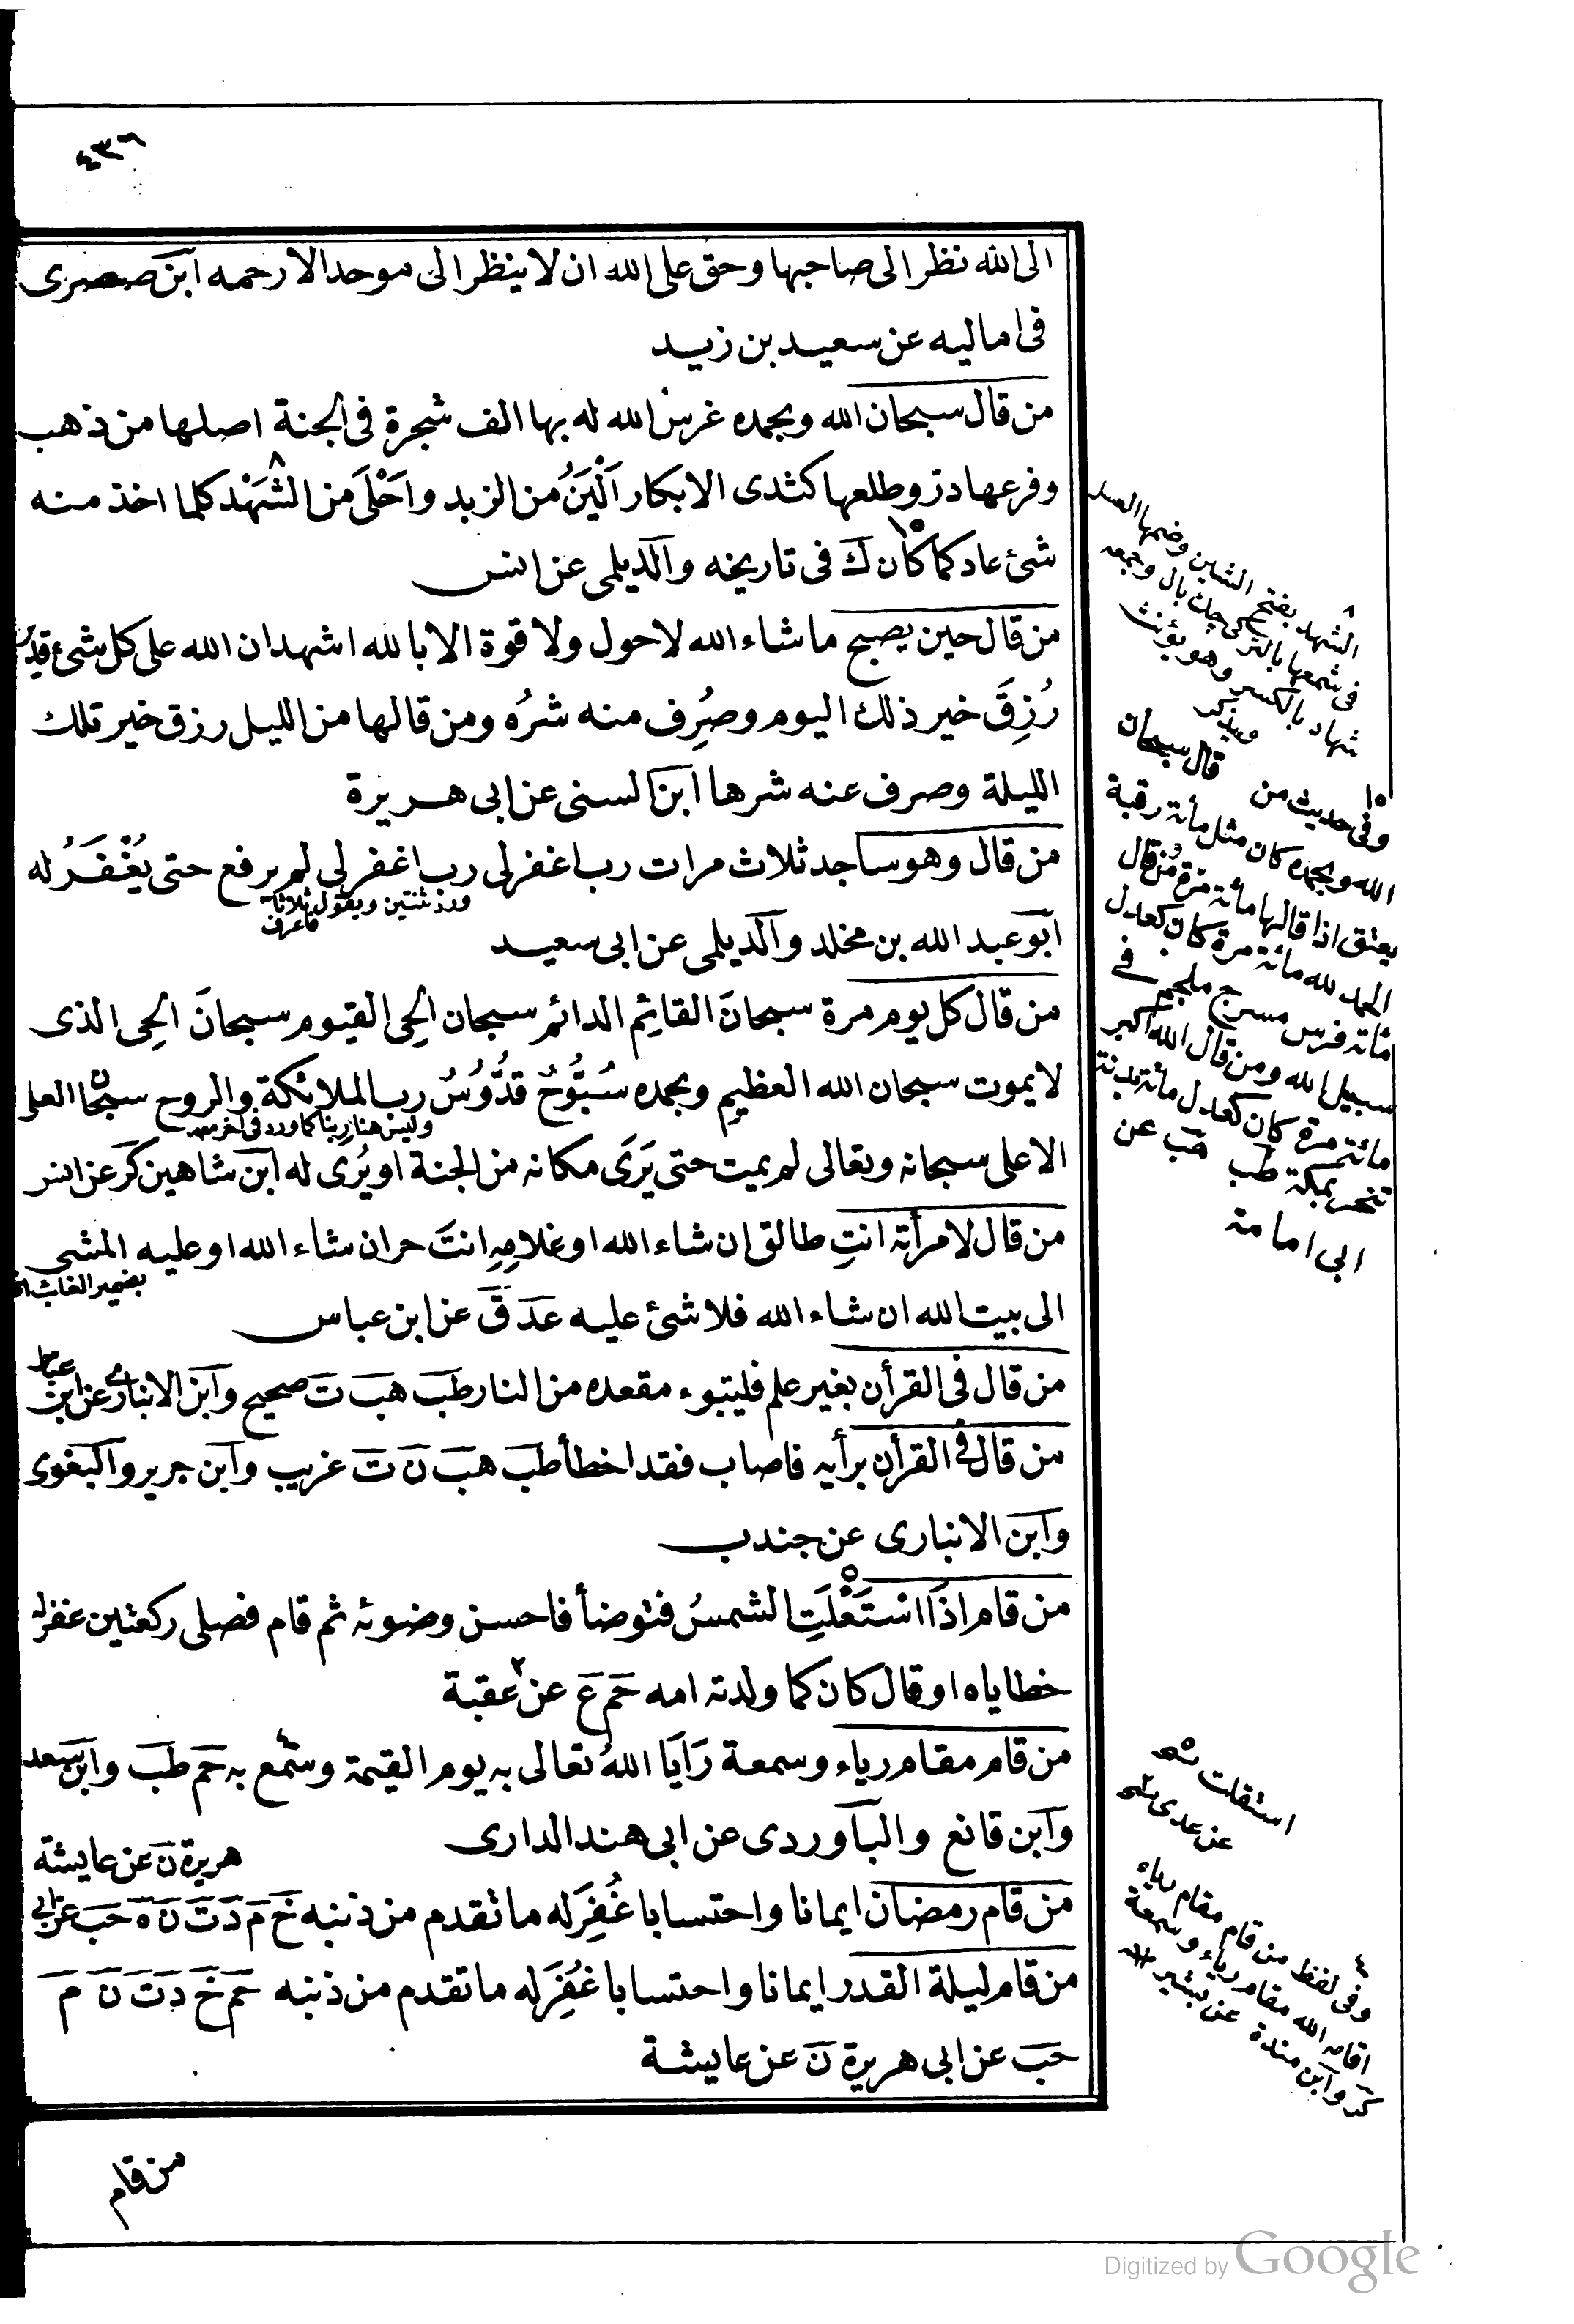 ٤٣٦
الى الله نظر الى صاحبها وحق على الله ان لا ينظر الى موحد الا رحمه ابن صصرى
فى اماليه عن سعيد بن زيد
من قال سبحان الله وبحمده غرس الله له بها الف شجرة فى الجنة اصلها من ذهب
وفرعها در وطلعها كثدى الابكار اَلْيَنُ من الزبد واَحْلَى من الشَهْد٨ كلما اخذ منه
شئ عاد كما كان١٥ ك فى تاريخه والديلمى عن انس
من قال حين يصبح ما شاء الله لا حول ولا قوة الا بالله اشهد ان الله على كل شئ قدير
رُزِقَ خير ذلك اليوم وصُرِف منه شرُه ومن قالها من الليل رزق خير تلك
الليلة وصرف عنه شرها ابن السنى عن ابى هريرة
من قال وهو ساجد ثلاث مرات رب اغفر لى رب اغفر لى لم يرفع حتى يُغْفَرُ له
ورد ثنتين ويقول ثلاثا فاعرف
ابو عبد الله بن مخلد والديلمى عن ابى سعيد
من قال كل يوم مرة سبحانَ القائِم الدائم سبحان الحى القيوم سبحانَ الحى الذى
لا يموت سبحان الله العظيم وبحمده سُبُّوحٌ قدُّوُسٌ رب الملائكة والروح سبحان العلى
وليس هنا ربنا كما ورد فى اخر
الاعلى سبحانه وتعالى لم يمت حتى يَرَى مكانه من الجنة او يُرى له ابن شاهين كر عن انس
من قال لامرأته انتِ طالق ان شاء الله او غلامِهِ انتَ حر ان شاء الله او عليه المشى
بضمير الغائب
الى بيت الله ان شاء الله فلا شئ عليه عد ق عن ابن عباس
من قال فى القرأن بغير علم فليتبوء مقعده من النار طب هب ت صحيح وابن الانبارى عن ابن عباس
من قال فى القرأن برأيه فاصاب فقد اخطأ طب هب ن ت غريب وابن جرير والبغوى
وابن الانبارى عن جندب
من قام اذَا اسْتَعْلَتِ٥ الشمسُ فتوضأ فاحسن وضوئه ثم قام فصلى ركعتين غفر له
خطاياه او قال كان كما ولدته امه حم ع عن٢ عقبة
من قام مقام رياء وسمعة رَايَا اللهُ تعالى به يوم القيمة وسَمَّع٤ به حم طب وابن سعد
وابن قانع والباوردى عن ابى هند الدارى
هريرة ن عن عايشة
من قام رمضان ايمانا واحتسابا غُفِرَ له ما تقدم من ذنبه خ م د ت ن ه حب عن ابى
من قام ليلة القدر ايمانا واحتسابا غُفِرَ له ما تقدم من ذنبه حم خ د ت ن م
حب عن ابى هريرة ن عن عايشة
من قام
٨ الشهد بفتح الشين وضمها العسل
فى شمعها بالتركى بال وجمعه
شهاد بالكسر وهو يؤنث
ويذكر
١٥ وفى حديث من قال سبحان
الله وبحمده كان مثل مأئة رقبة
يعتق اذا قالها مائة مرة ومن قال
الحمد لله مائة مرة كان كعدل
مأئة فرس مسرج ملجم فى
سبيل الله ومن قال الله اكبر
مائة مرة كان كعدل مائة بدنة
تنحر بمكة طب هب عن
ابى امامة
استقلت٥
عن عدى٢
٤ وفى لفظ من قام مقام رياء
اقامه الله مقام رياء وسمعة
كر وابن مندة عن بشير
Digitized by Google